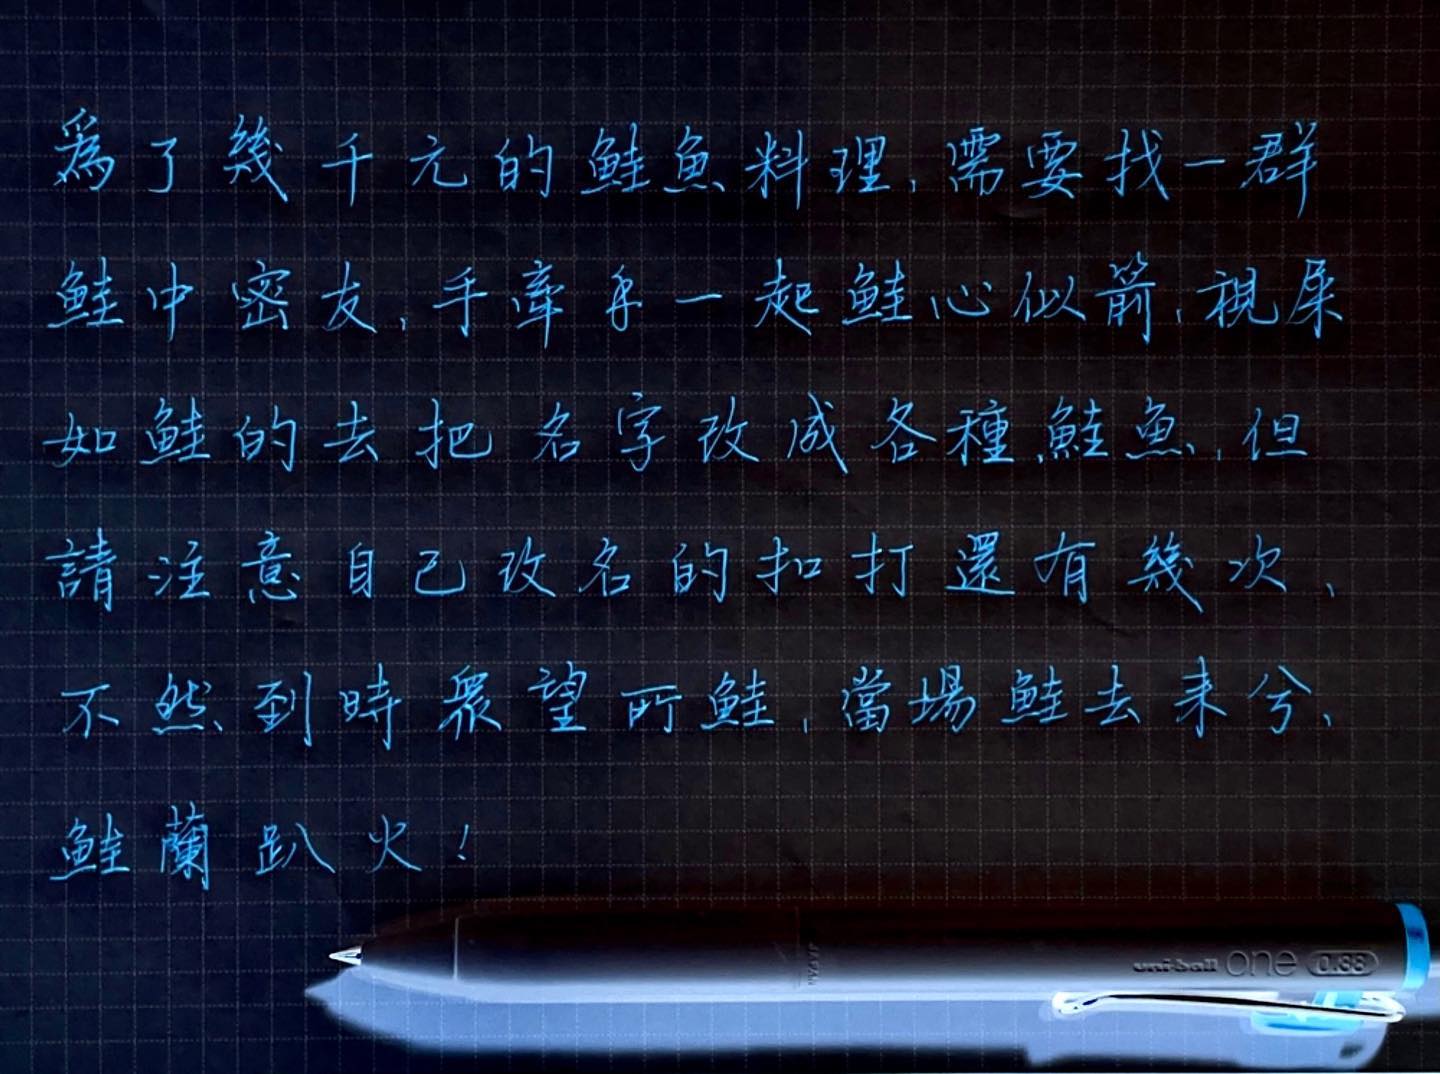 為了幾千元的鮭魚料理,需要找一群
鮭中密友,手牽手一起鮭心似箭,視屎
如鮭的去把名字改成各種鮭魚,但
請注意自己改名的扣打還有幾次、
不然到時眾望所鮭,當場鮭去來兮、
鮭蘭趴火!
JAPAN
uni-ball one 0.38